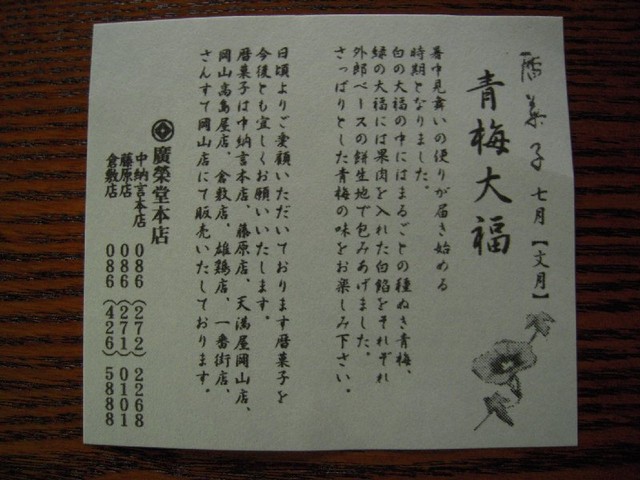 暦菓子 七月【文月】
青梅大福
暑中見舞いの便りが届き始める
時期となりました。
白の大福の中にはまるごとの種ぬき青梅、
緑の大福には果肉を入れた白餡をそれぞれ
外郎ベースの餅生地で包みあげました。
さっぱりとした青梅の味をお楽しみ下さい。
日頃よりご愛顧いただいております暦菓子を
今後とも宜しくお願いいたします。
暦菓子は中納言本店、藤原店、天満屋岡山店、
岡山高島屋店、倉敷店、雄鶏店、一番街店、
さんすて岡山店にて販売いたしております。
廣榮堂本店
中納言本店 086(272)2268
藤原店 086(271)0101
倉敷店 086(426)5888